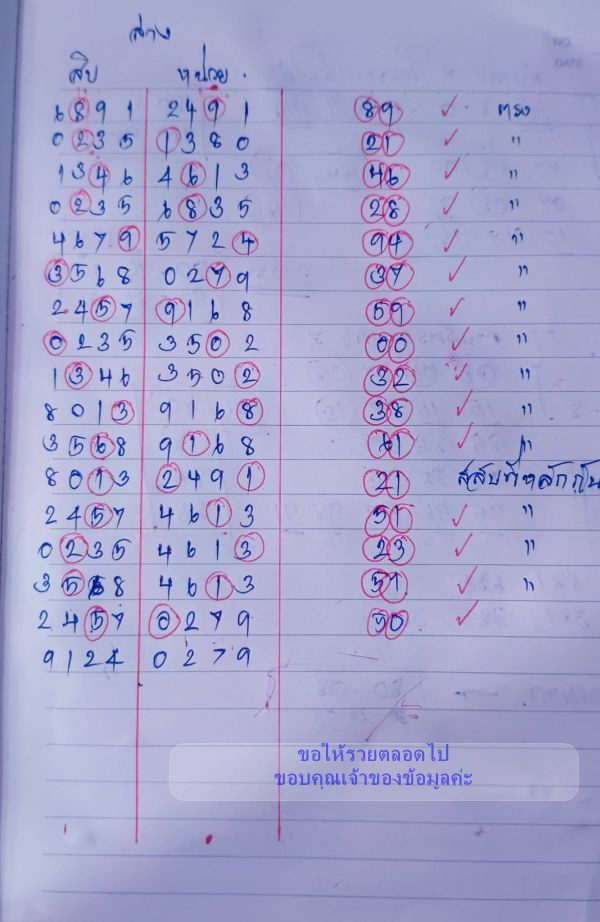 ล่าง
สิบ หน่วย.
6891 2491 89 ✓ ตรง
0235 1380 21 ✓ "
1346 4613 46 ✓ "
0235 6835 28 ✓ "
4679 5724 94 ✓ "
3568 0279 37 ✓ "
2457 9168 59 ✓ "
0235 3502 00 ✓ "
1346 3502 32 ✓ "
8013 9168 38 ✓ "
3568 9168 61 ✓ "
8013 2491 21 สลับที่หลักกัน
2457 4613 51 ✓ "
0235 4613 23 ✓ "
3568 4613 51 ✓ "
2457 0279 50 ✓
9124 0279
ขอให้รวยตลอดไป
ขอบคุณเจ้าของข้อมูลค่ะ